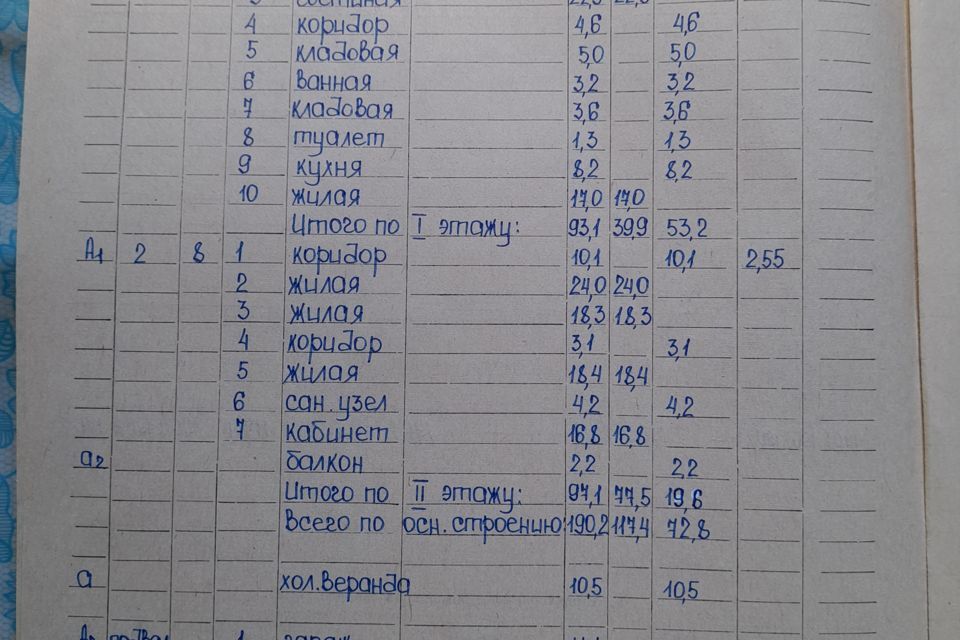 3 гостиная 22,9 22,9
4 коридор 4,6 4,6
5 кладовая 5,0 5,0
6 ванная 3,2 3,2
7 кладовая 3,6 3,6
8 туалет 1,3 1,3
9 кухня 8,2 8,2
10 жилая 17,0 17,0
Итого по I этажу: 93,1 39,9 53,2
А1 2 8 1 коридор 10,1 10,1 2,55
2 жилая 24,0 24,0
3 жилая 18,3 18,3
4 коридор 3,1 3,1
5 жилая 18,4 18,4
6 сан. узел 4,2 4,2
7 кабинет 16,8 16,8
а2 балкон 2,2 2,2
Итого по II этажу: 97,1 77,5 19,6
Всего по осн. строению: 190,2 117,4 72,8
а хол. веранда 10,5 10,5
подвал 1 гараж